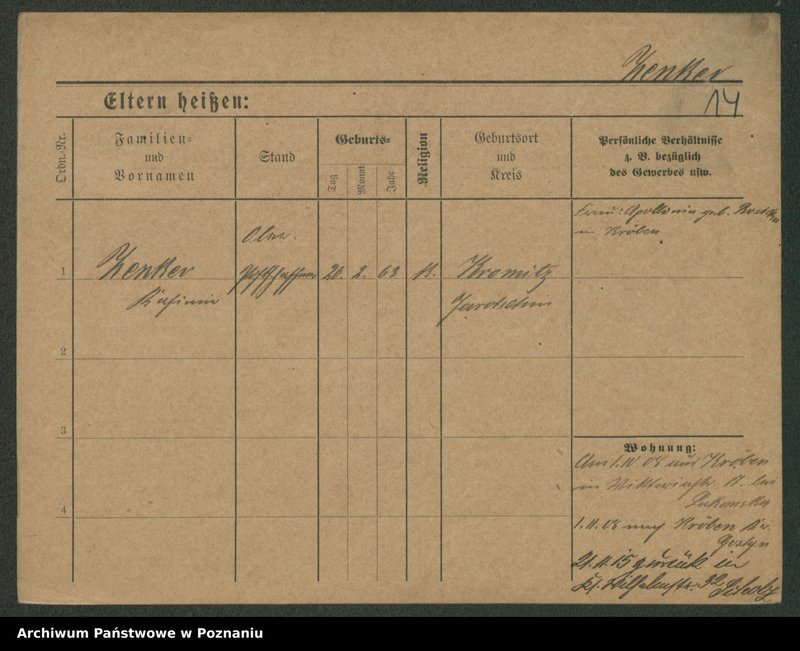 Zenker
14
Eltern heißen:
Ordn.-Nr.
Familien- und Vornamen
Stand
Geburts-
Tag
Monat
Jahr
Religion
Geburtsort und Kreis
Persönliche Verhältnisse z. B. bezüglich des Gewerbes usw.
Frau: Apollonia geb.
in Kröben
1
Zenker
Kasimir
Ober
Postschaffner
20. 2. 63
K.
Kromitz
Jarotschin
2
3
4
Wohnung:
Am 1. 08 Kröben
in Viktoriastr. bei
1. 11. 08 nach Kröben Kr.
Gostyn
21. 11. 15 zurück in
Kf. Wilhelmstr. 32 Scholz
Archiwum Państwowe w Poznaniu